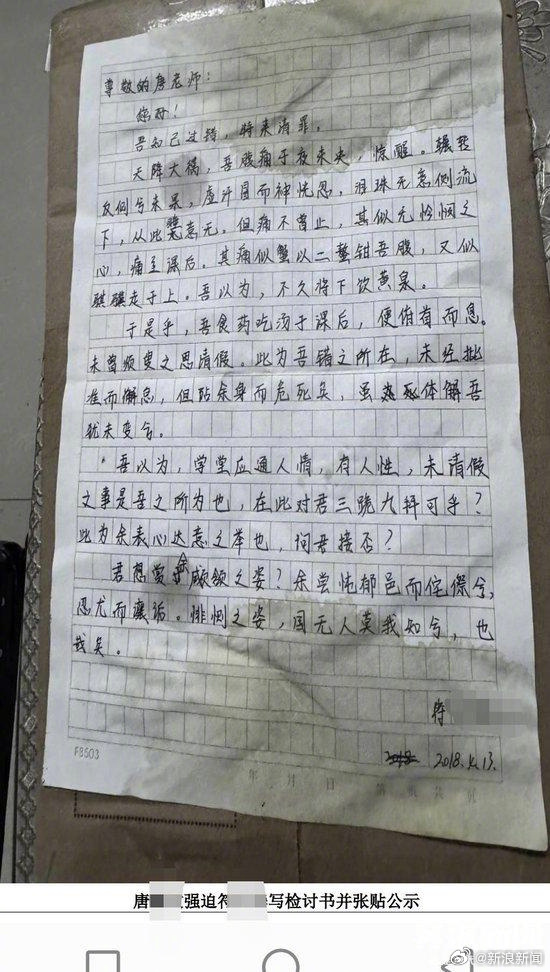 尊敬的唐老师：
您好！
吾知己过错，特来请罪。
天降大祸，吾腹痛于夜未央，惊醒。辗转
反侧兮未果，虚汗冒而神恍忽，泪珠无意侧流
下，从此意无，但痛不曾止，其似无怜悯之
心，痛至课后。其痛似蟹以二螯钳吾腹，又似
骐骥走于上。吾以为，不久将下饮黄泉。
于是乎，吾食药吃汤于课后，便俯首而息。
未曾须臾之思请假。此为吾错之所在，未经批
准而懈怠，但阽余身而危死矣，虽体解吾
犹未变兮。
吾以为，学堂应通人情，有人性，未请假
之事是吾之所为也，在此对君三跪九拜可乎？
此为余表心达意之举也，问君接否？
君想爱余顑颔之姿？余尝忳郁邑而侘傺兮，
忍尤而攘诟。悱恻之姿，国无人莫我知兮，也
哉矣。
符
2018.
F8503
年 月 日 第 页共 页
唐 强迫符 写检讨书并张贴公示
@新浪新闻